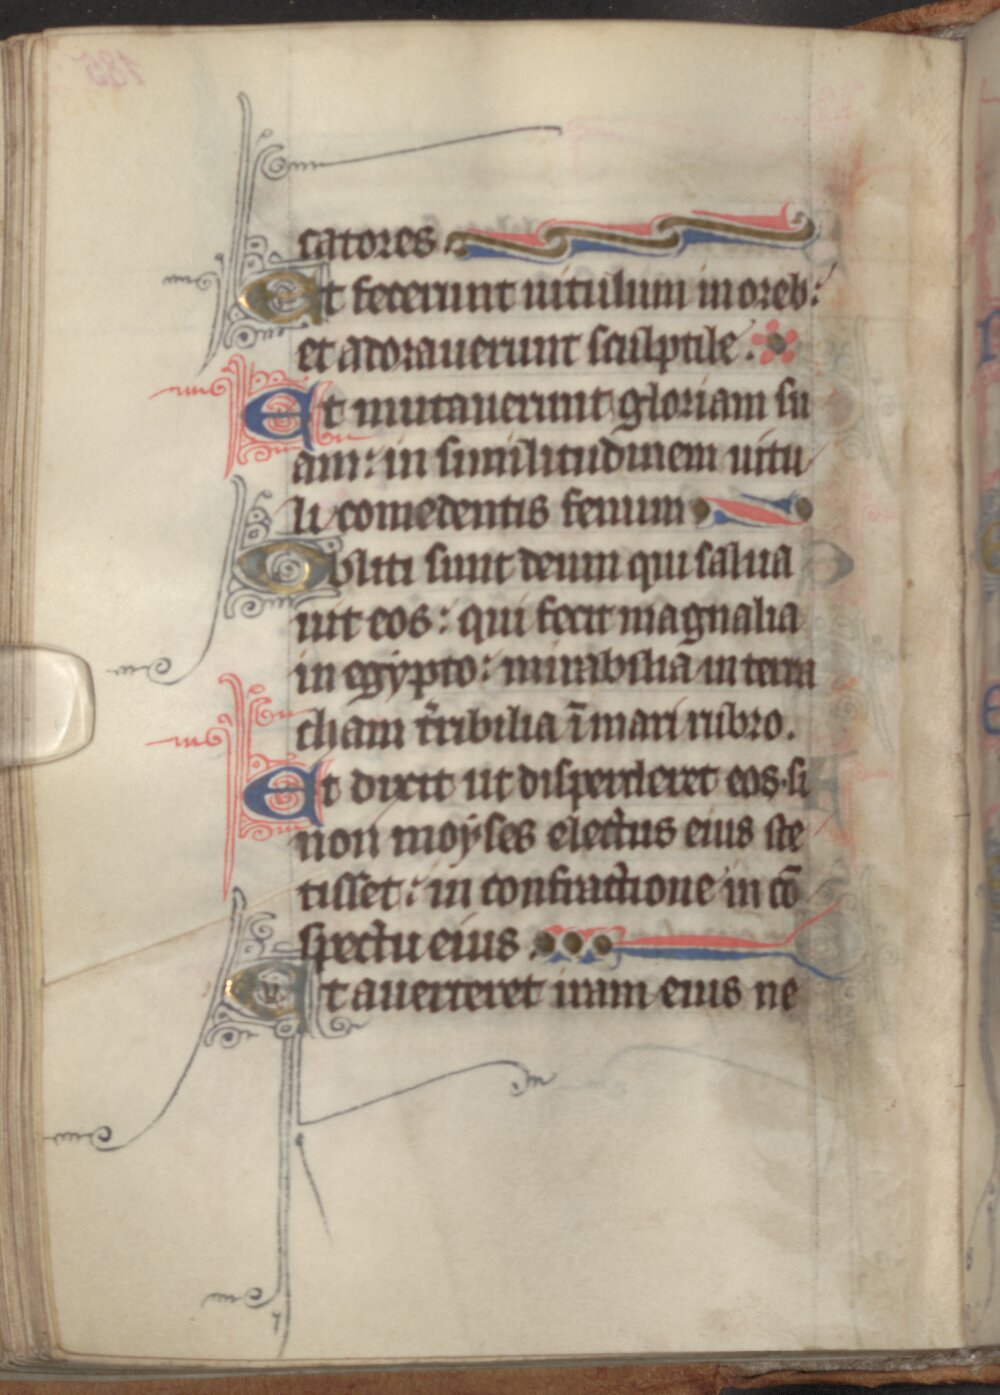 catores
Et fecerunt uitulum in oreb:
et adorauerunt sculptile.
Et mutauerunt gloriam su
am: in similitudinem uitu
li comedentis fenum
Obliti sunt deum qui salua
uit eos: qui fecit magnalia
in egypto: mirabilia in terra
cham t̄ribilia ī mari rubro.
Et dixit ut disperderet eos. si
non moyses electus eius ste
tisset: in confractione in cō
spectu eius.
Et auerteret iram eius ne